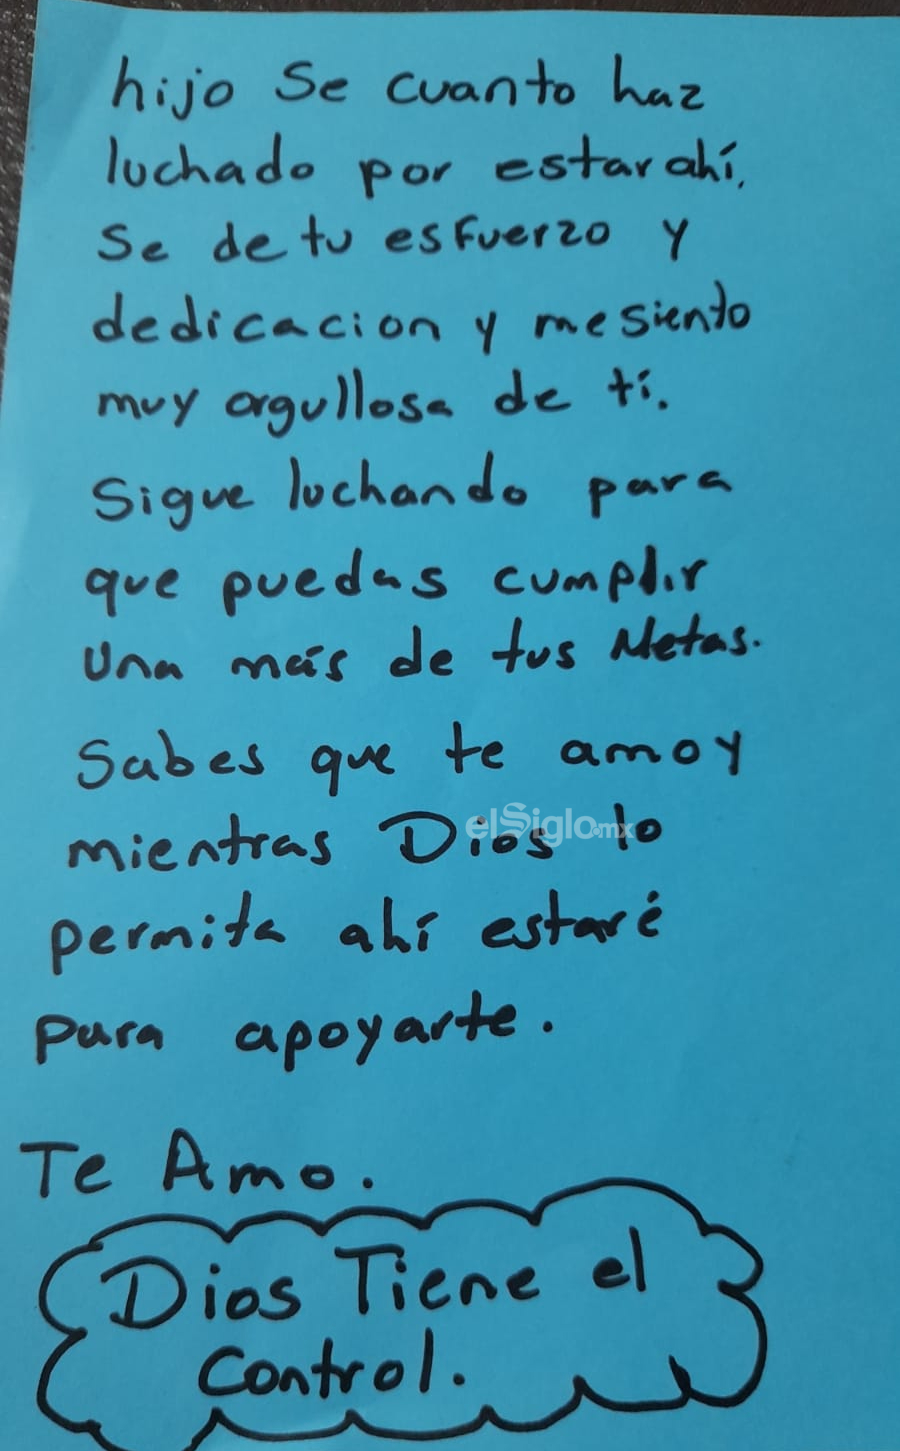 hijo Se cuanto haz
luchado por estar ahí.
Se de tu esfuerzo y
dedicacion y me siento
muy orgullosa de tí.
Sigue luchando para
que puedas cumplir
Una más de tus Metas.
Sabes que te amo y
mientras Dios lo
elSiglo.mx
permita ahí estaré
para apoyarte.
Te Amo.
Dios Tiene el
Control.